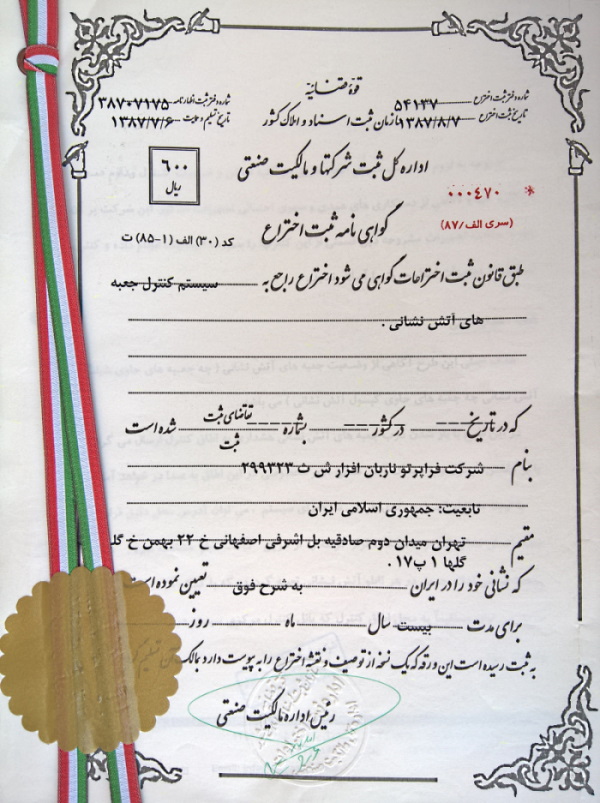 قوهٔ قضائیه
شماره دفتر ثبت اختراع ۵۴۱۳۷ شماره دفتر ثبت اظهارنامه ۳۸۷۰۷۱۷۵
تاریخ ثبت اختراع ۱۳۸۷/۸/۷ سازمان ثبت اسناد و املاک کشور تاریخ تسلیم ۱۳۸۷/۷/۶
اداره کل ثبت شرکتها و مالکیت صنعتی
۶۰۰
ریال
* ۰۰۰۴۷۰
(سری الف/۸۷)
گواهی نامه ثبت اختراع
کد (۳۰) الف (۱-۸۵) ت
طبق قانون ثبت اختراعات گواهی می شود اختراع راجع به سیستم کنترل جعبه
های آتش نشانی .
که در تاریخ --- در کشور --- شماره --- تقاضای ثبت شده است
ثبت
بنام شرکت فراپرتو تاربان افزار ش ث ۲۹۹۳۲۳
تابعیت: جمهوری اسلامی ایران
مقیم تهران میدان دوم صادقیه بل اشرفی اصفهانی خ ۲۲ بهمن خ
گلها ۱ پ۱۷.
که نشانی خود را در ایران به شرح فوق تعیین نموده است
برای مدت بیست سال ماه روز
به ثبت رسیده است این ورقه که یک نسخه از توصیف و نقشه اختراع را به پیوست دارد بمالک آن تسلیم
رئیس اداره مالکیت صنعتی